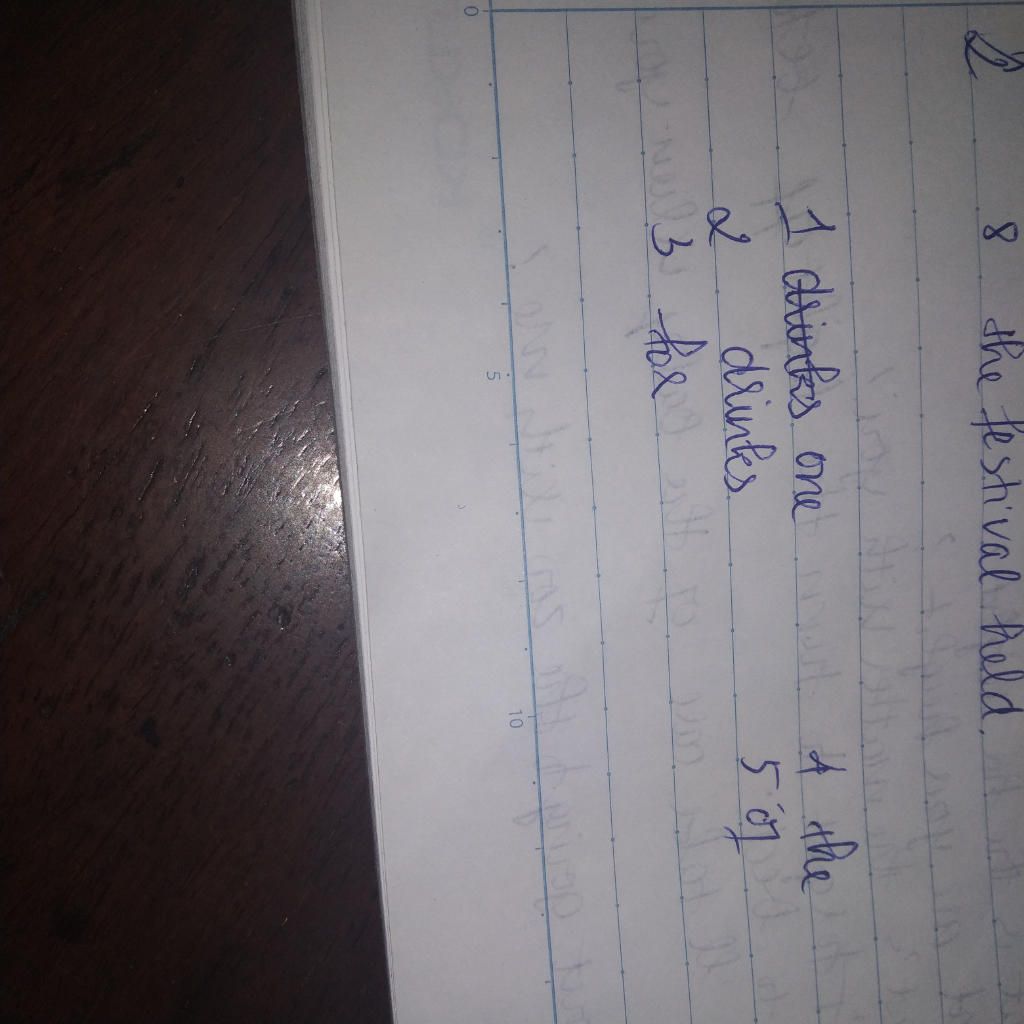 2 8 the festival held.
1 drinks one 4 the
2 drinks 5 of
3 for
0 5 10